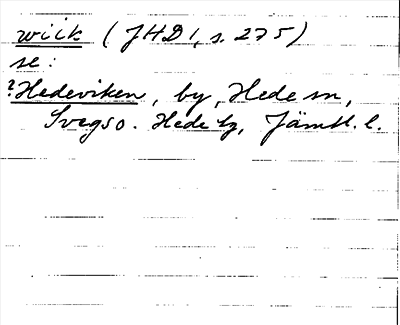 wiik (JHD 1, s. 275)
se:
?Hedeviken, by, Hede sn,
Svegs o. Hede tg, Jämtl. l.